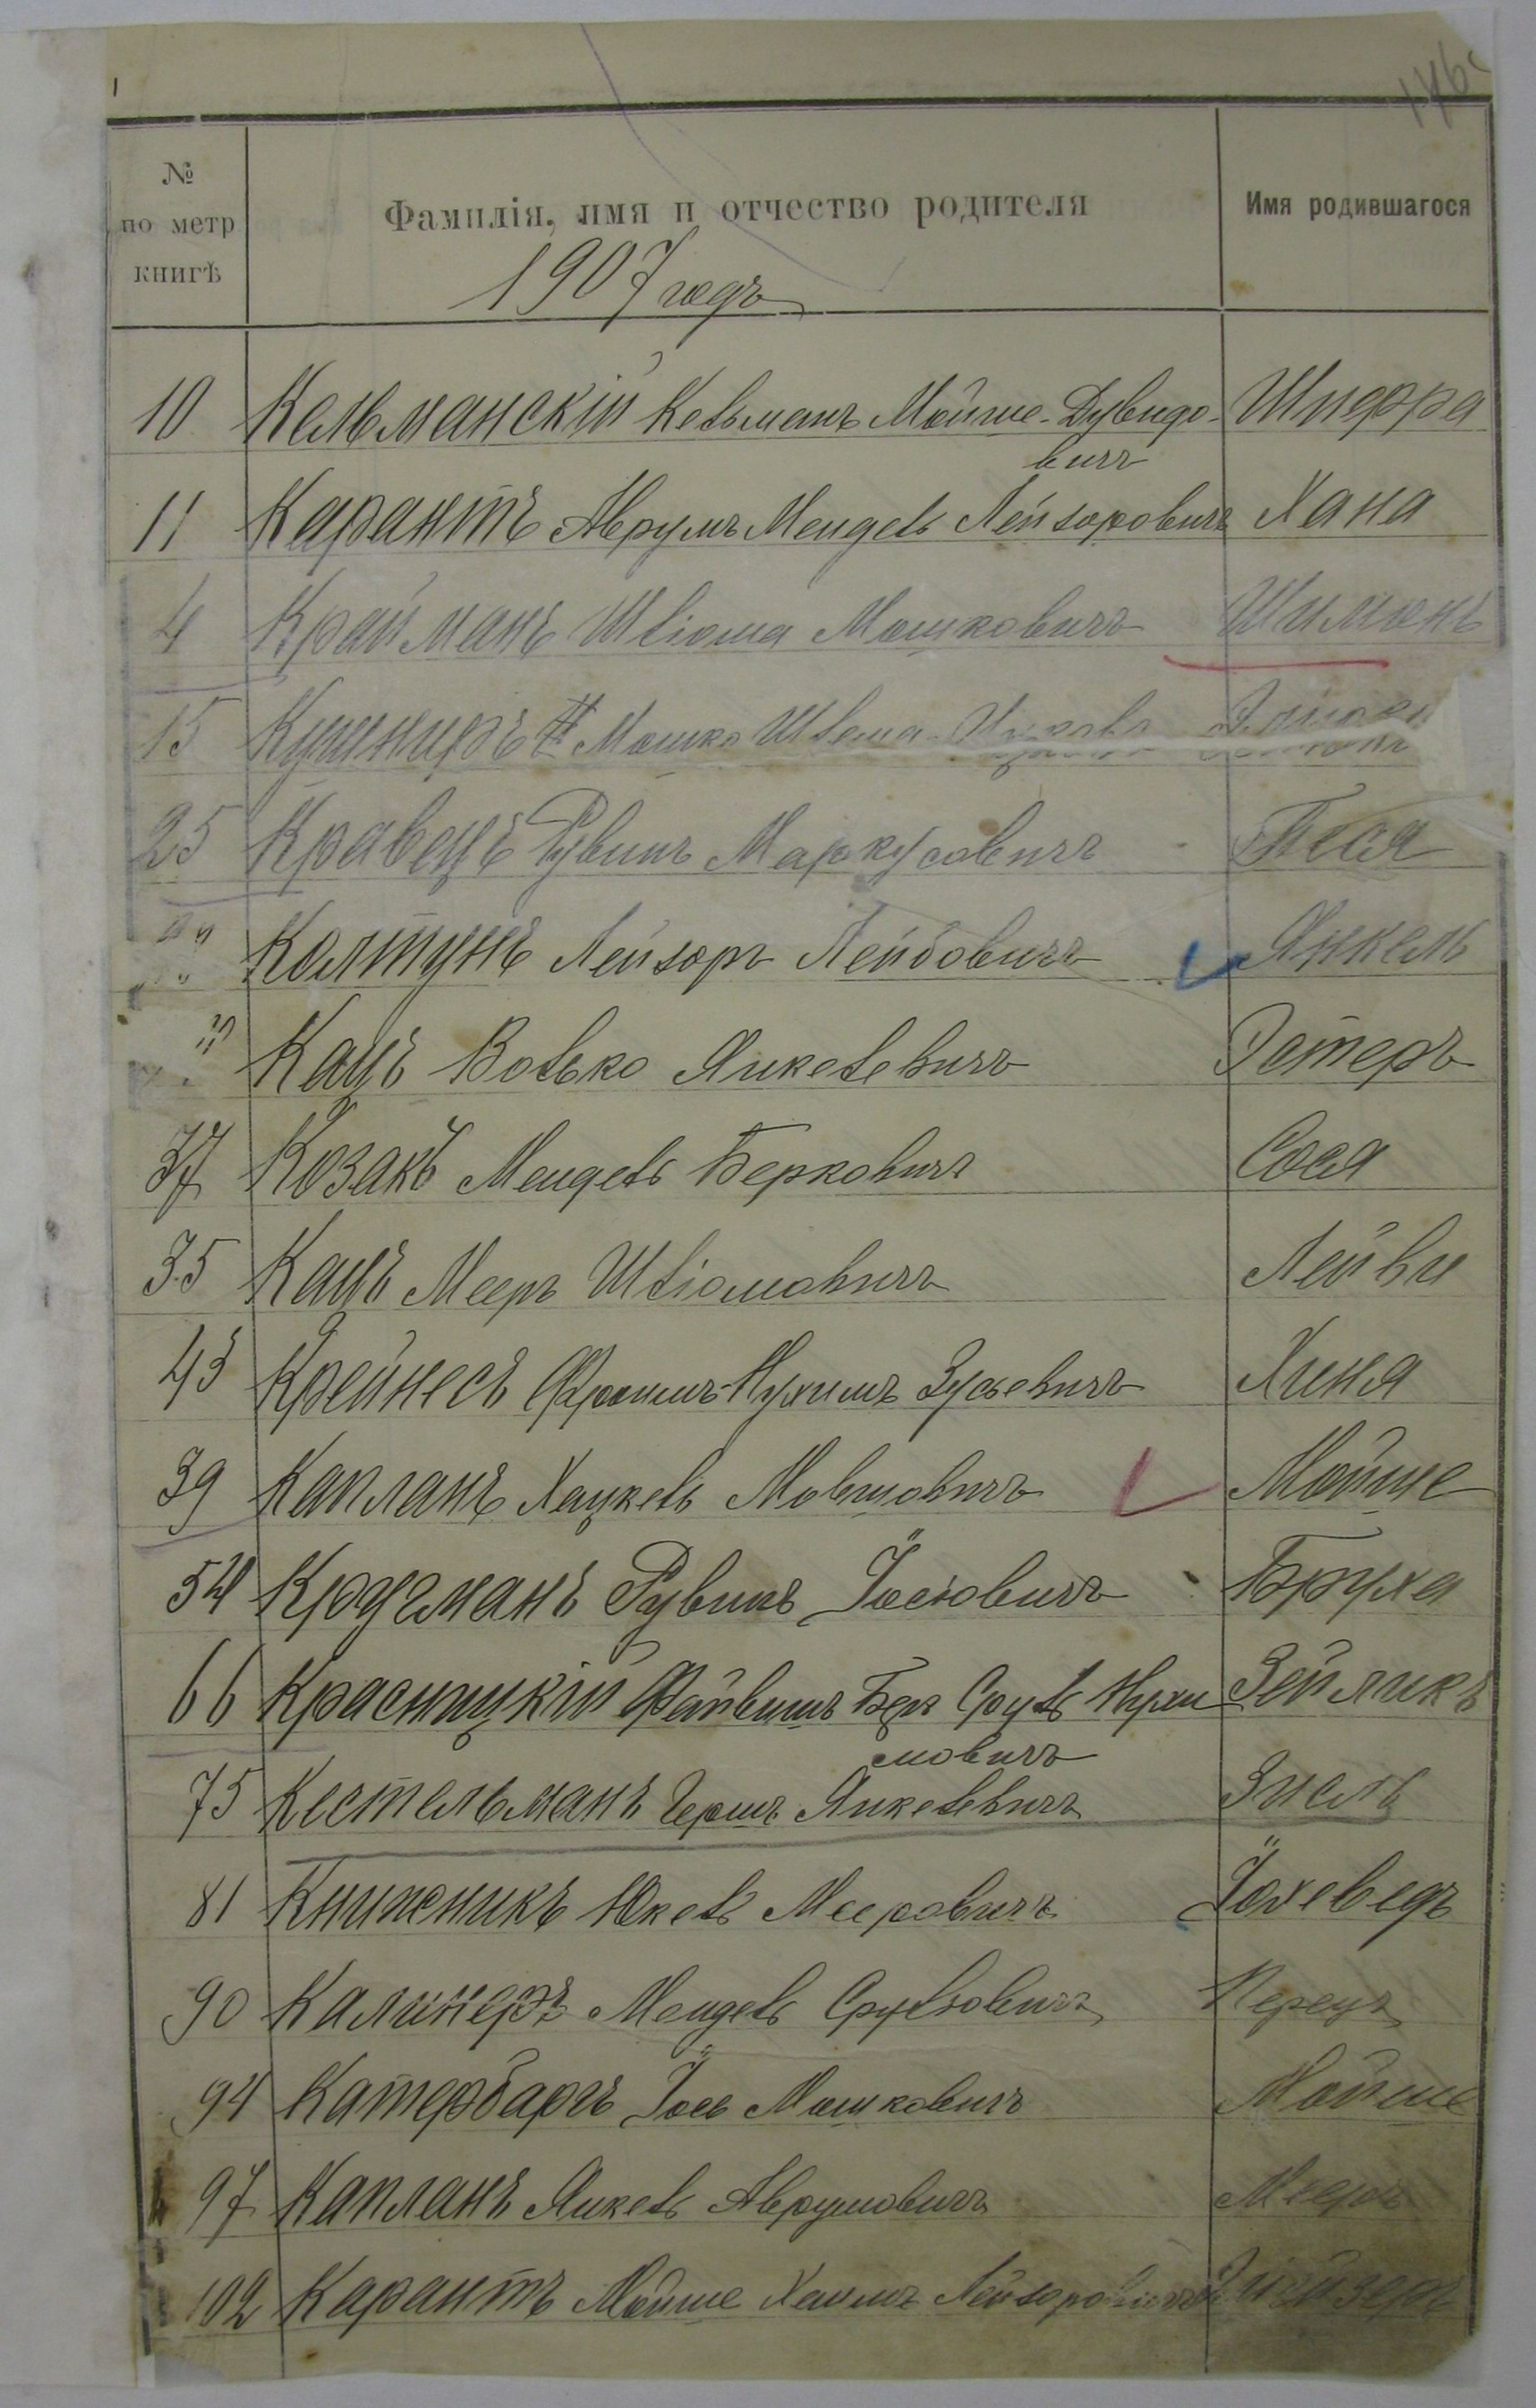 146
№ по метр книгѣ Фамилія, имя и отчество родителя Имя родившагося
1907 годъ
10 Кельманскій Кельманъ Мойше-Дувидо- Шифра
вичъ
11 Карантъ Аврумъ Мендель Лейзоровичъ Хана
4 Крайманъ Шліома Мошковичъ Шимонъ
15 Кушниръ Мошко Шлема
25 Кравецъ Рувинъ Маркусовичъ Песя
" " Колтунъ Лейзоръ Лейбовичъ Янкель
" Кацъ Волько Янкелевичъ Эстеръ
37 Козакъ Мендель Берковичъ Сося
35 Кацъ Мееръ Шліомовичъ Лейви
43 Крейнесъ Фроимъ-Нухимъ Зусьевичъ Хиня
39 Капланъ Хацкель Мовшовичъ Мойше
54 Кругманъ Рувинъ Іосіовичъ Бруха
66 Красницкій Файвишъ Беръ Сруль Нухи Зейликъ
мовичъ
75 Кестельманъ Гершъ Янкелевичъ Знель
81 Книжникъ Юкель Мееровичъ Іохеведъ
90 Калинеръ Мендель Сруліовичъ Перецъ
94 Катербаргъ Іось Мошковичъ Мойше
97 Капланъ Янкель Аврумовичъ Мееръ
102 Карантъ Мойше Хаимъ Лейзоровичъ